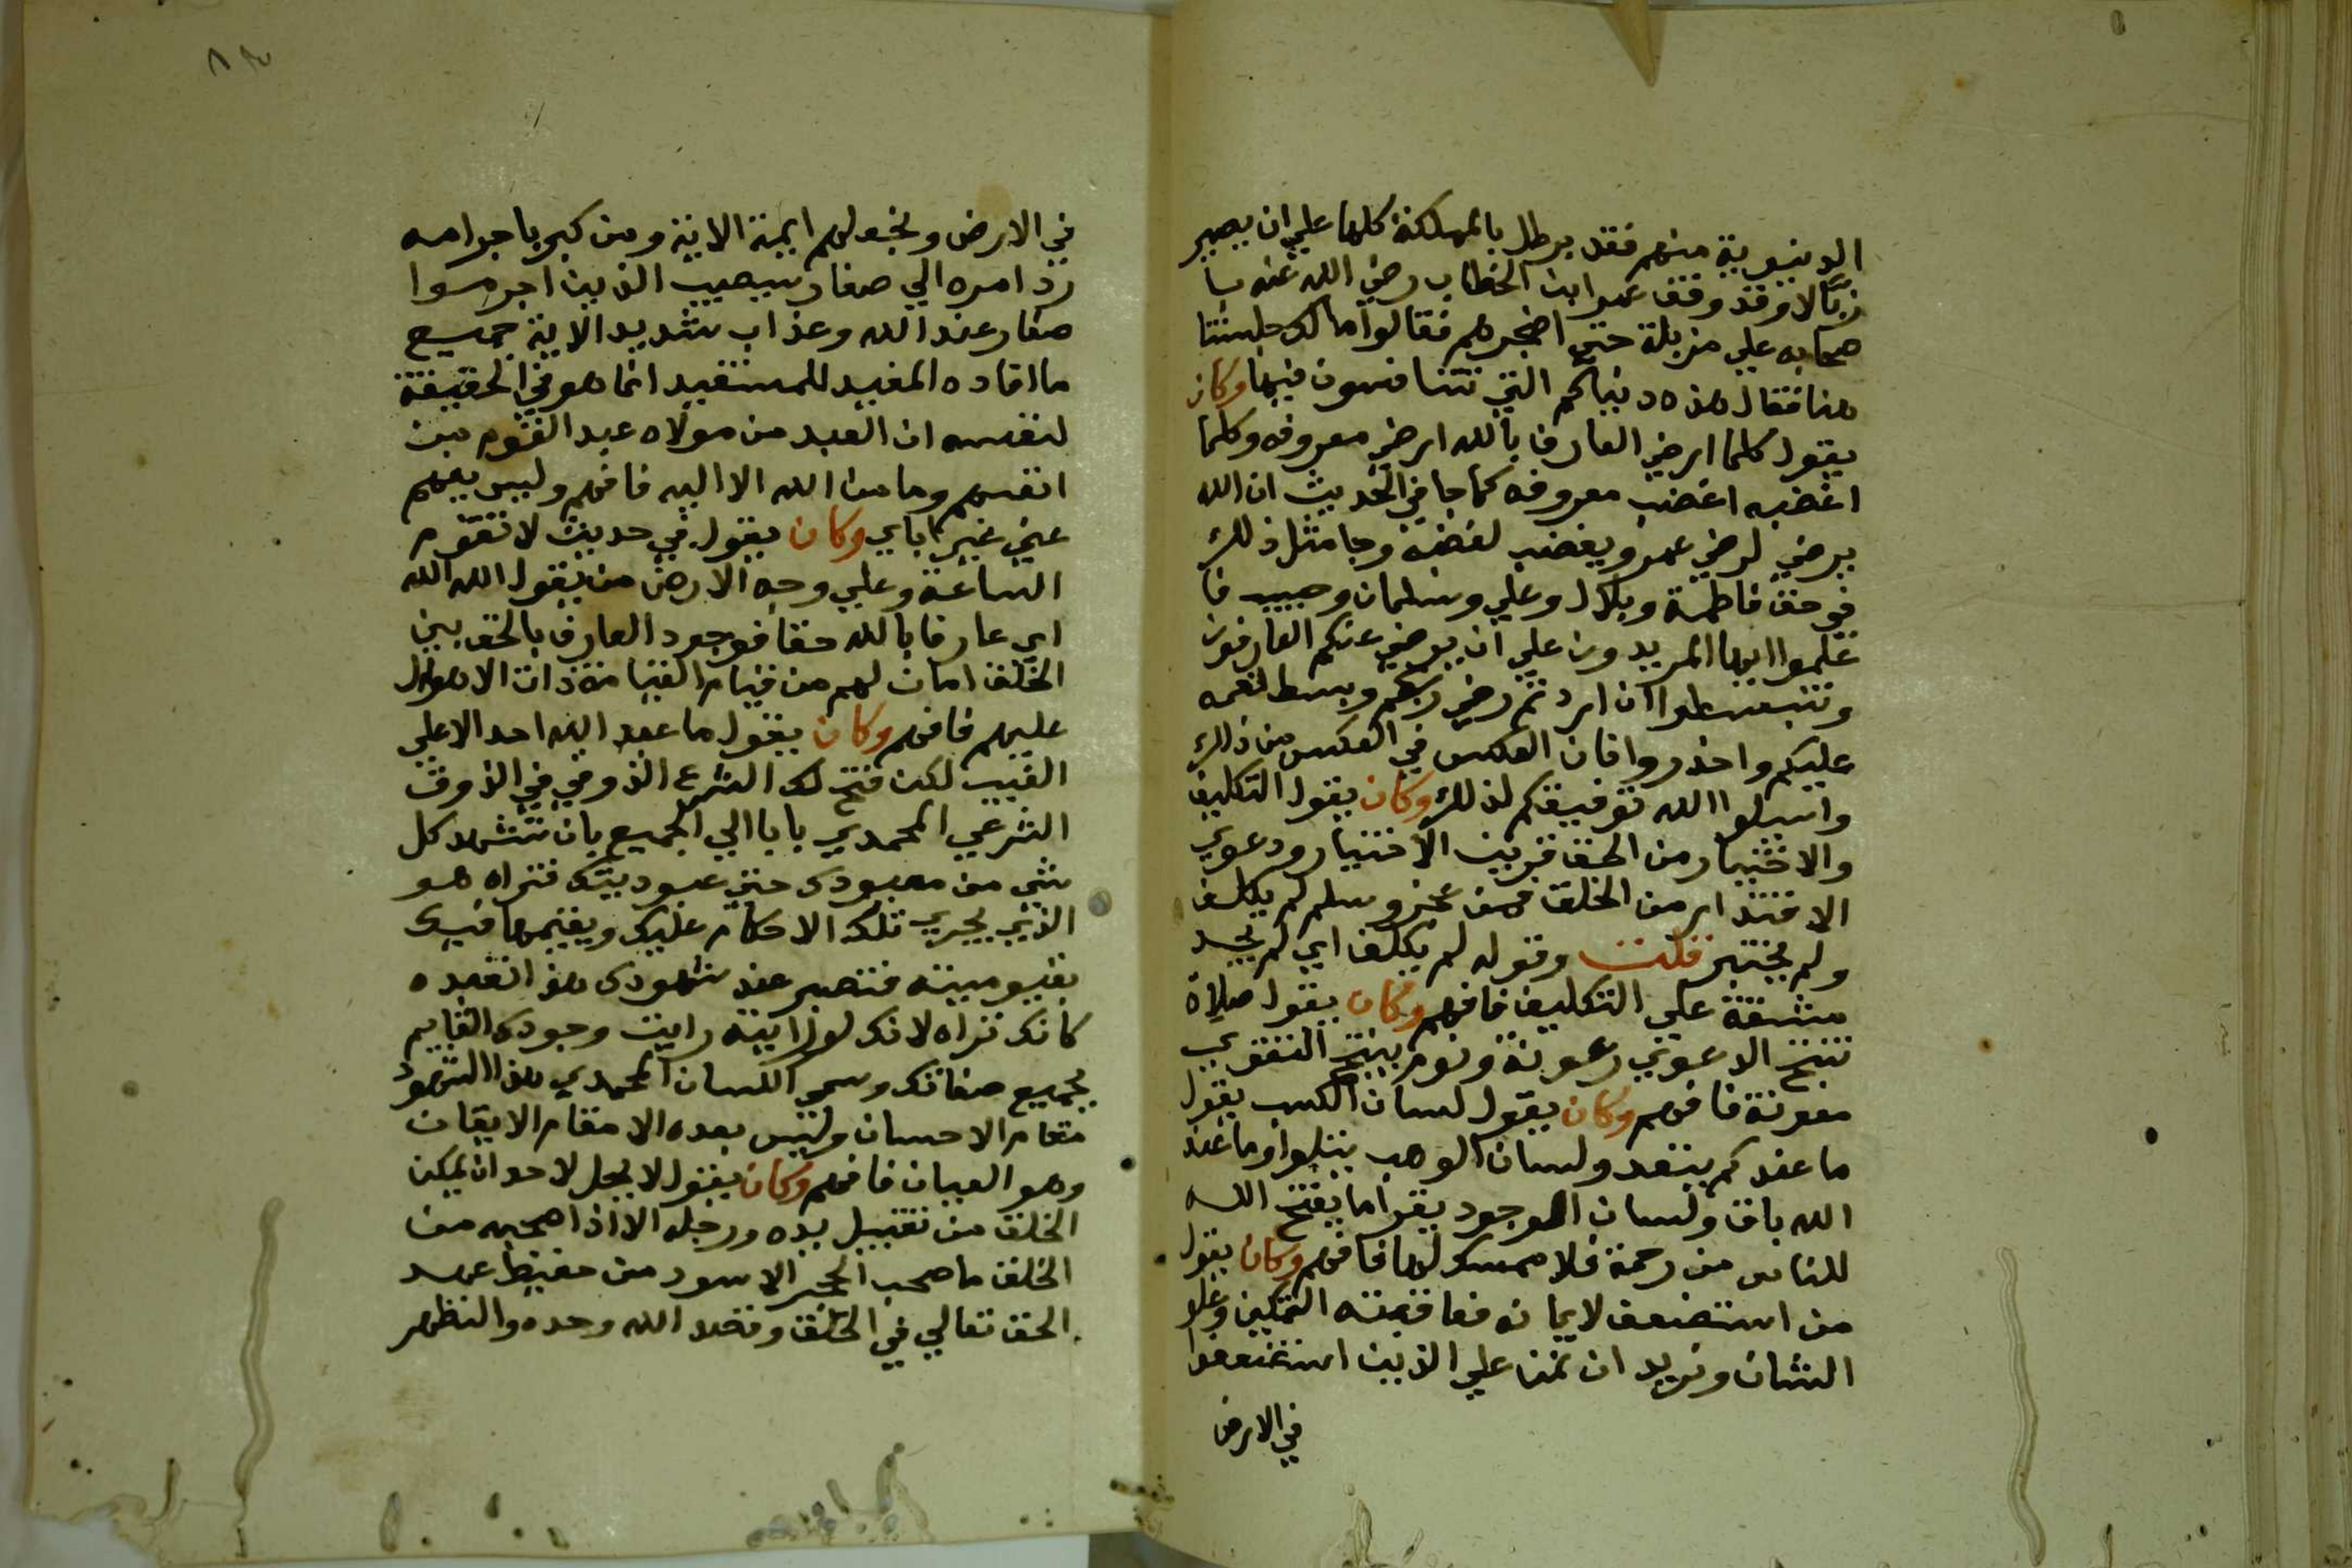 الدنيوية منهم فقد برطل بالمملكة كلها علي ان يصير
زبّالا وقد وقف عمر ابن الخطاب رضي الله عنه با
صحابه علي مزبلة حتي اضجرهم فقالوا مالك حبستنا
هنا فقال هذه دنياكم التي تتنافسون فيها وكان
يقول كلما ارضي العارف بالله ارضي معروفه وكلما
اغضبه اغضب معروفه كما جا في الحديث ان الله
يرضي لرضي عمر ويغضب لغضبه وجا مثل ذلك
في حق فاطمة وبلال وعلي وسلمان وحبيب فا
علموا ايها المريدون علي ان يرضي عنكم العارفون
وتنبسطوا ان اردتم رضي ربكم وبسط نعمه
عليكم واحذروا فان العكس في العكس من ذلك
واسيلوا الله توفيقكم لذلك وكان يقول التكليف
والاختبار من الحق قرين الاختيار ودعوي
الاقتدار من الخلق فمن عجز وسلم لم يكلف
ولم يختبر قلت وقوله لم يكلف اي لم يجد
مشقة علي التكليف فافهم وكان يقول صلاة
تنتج الدعوي رعونة ونوم ينتج التقوي
معونة فافهم وكان يقول لسان الكسب يقول
ما عندكم ينفد ولسان الوهب يتلوا وما عند
الله باق ولسان الوجود يقرا ما يفتح الله
للناس من رحمة فلا ممسك لها فافهم وكان يقول
من استضعف لايمانه فعاقبته التمكين وعلو
الشان ونريد ان نمن علي الذين استضعفوا
في الارض
في الارض ونجعلهم ايمة الاية ومن كبر باجرامه
رد امره الي صغار سيصيب الذين اجرموا
صغار عند الله وعذاب شديد الاية جميع
ما افاده المفيد للمستفيد انما هو في الحقيقة
لنفسه ان العبد من مولاه عبد القوم من
انفسهم وما من الله الا اليه فافهم وليس يفهم
عني غير اياي وكان يقول في حديث لا تقوم
الساعة وعلي وجه الارض من يقول الله الله
اي عارفا بالله حقا فوجود العارف بالحق بين
الخلق امان لهم من قيام القيامة ذات الاهوال
عليهم فافهم وكان يقول ما عبد الله احد الا علي
الغيب لكن فتح لك الشرع الذوقي في الذوق
الشرعي المحمدي بابا الي الجميع بان تشهد كل
شي من معبودك حتي عبوديتك فتراه هو
الذي يجري تلك الاحكام عليك ويقيمها فيك
بقيوميته فتصير عند شهودك هذا تعبده
كانك تراه لانك لو رايته رايت وجودك القايم
بجميع صفاتك وسمي اللسان المحمدي هذا الشهود
مقام الاحسان وليس بعده الا مقام الايقان
وهو العيان فافهم وكان يقول لا يحل لاحد ان يمكن
الخلق من تقبيل يده ورجله الا اذا صحبه من
الخلق ما صحب الحجر الاسود من حفيظ عهد
الحق تعالي في الخلق وقصد الله وحده والتطهر